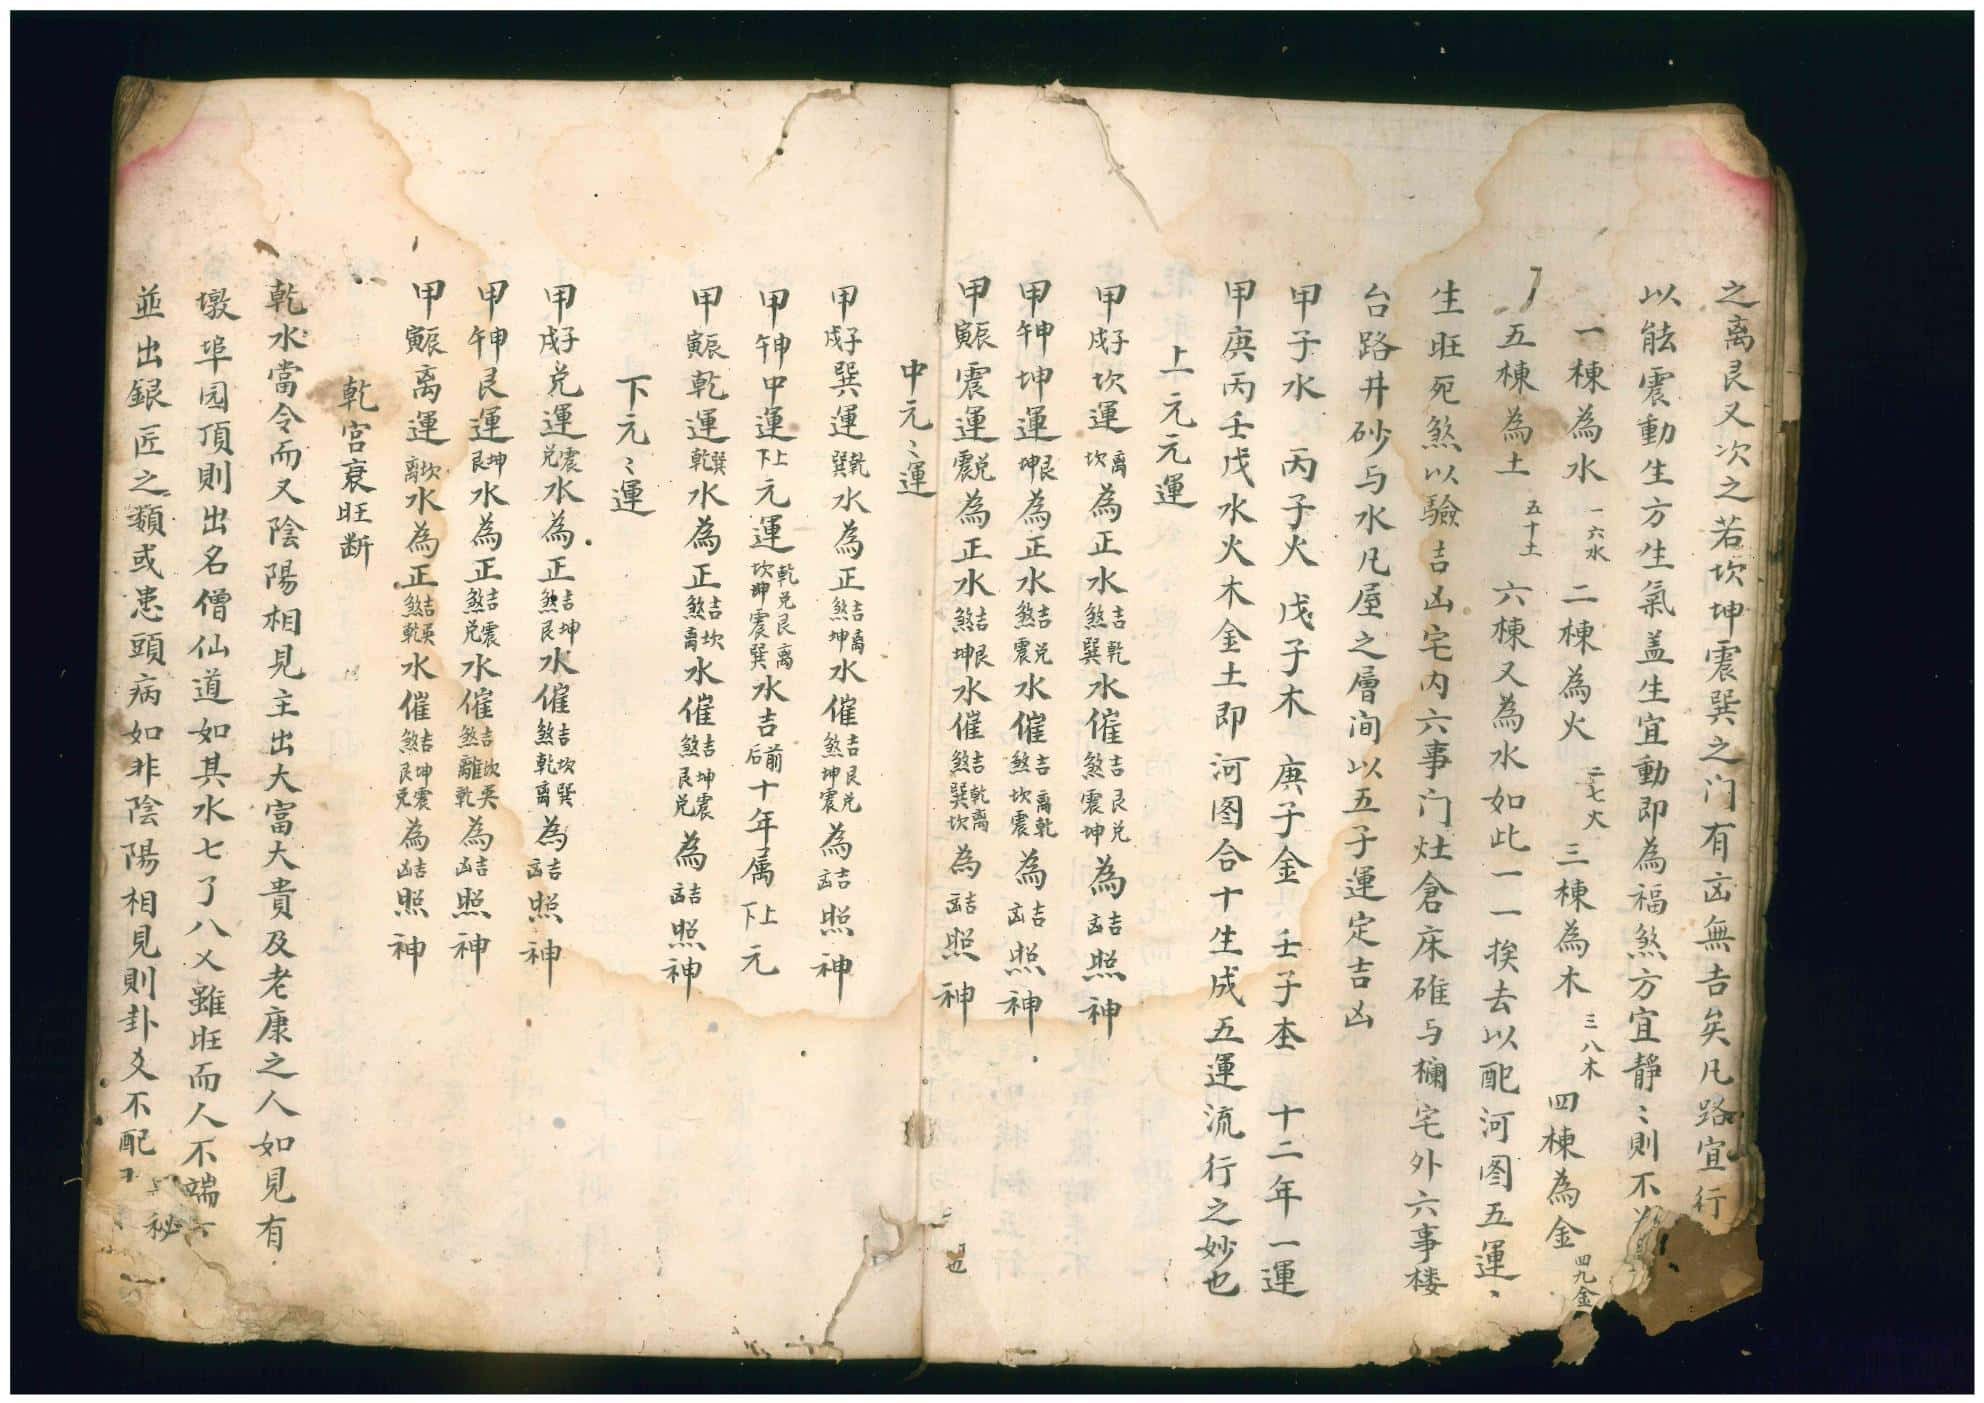 之离艮又次之若坎坤震巽之门有凶無吉矣凡路宜行
以能震動生方生氣盖生宜動即為福煞方宜靜〻則不
一棟為水一六水二棟為火二七火三棟為木三八木四棟為金四九金
五棟為土五十土六棟又為水如此一一挨去以配河图五運
生旺死煞以驗吉凶宅内六事门灶倉床碓与欄宅外六事楼
台路井砂与水凡屋之層间以五子運定吉凶
甲子水 丙子火 戊子木 庚子金 壬子 十二年一運
甲庚丙壬戊水火木金土即河图合十生成五運流行之妙也
上元元運
甲子戌坎運離坎為正水吉煞乾巽水催吉煞艮兑震坤為吉凶照神
甲申午坤運艮坤為正水吉煞兑震水催吉煞離乾坎震為吉凶照神
甲辰寅震運兑震為正水吉煞艮坤水催吉煞乾離巽坎為吉凶照神
也
中元〻運
甲子戌巽運乾巽水為正吉煞離坤水催吉煞艮兑坤震為吉凶照神
甲申午中運上下元運乾兑艮离坎坤震巽水吉前后十年属上下元
甲辰寅乾運巽乾水為正吉煞坎离水催吉煞坤震艮兑為吉凶照神
下元〻運
甲子戌兑運震兑水為正吉煞坤艮水催吉煞坎巽乾离為吉凶照神
甲申午艮運坤艮水為正吉煞震兑水催吉煞坎巽離乾為吉凶照神
甲辰寅离運坎離水為正吉煞巽乾水催吉煞坤震艮兑為吉凶照神
乾宫衰旺断
乾水當令而又陰陽相見主出大富大貴及老康之人如見有
墩埠园頂則出名僧仙道如其水七了八乂雖旺而人不端
並出銀匠之類或患頭病如非陰陽相見則卦爻不配
秘